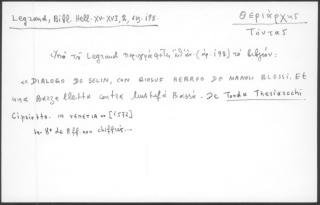 Legrand, Bibl. Hell. XV-XVI, 2, σημ. 198.
Θεριάρχης
Τόντας
Ὑπὸ τοῦ Legrand περιγράφεται (ἀρ. 198) τὸ βιβλίον:
« DIALOGO DE SELIN, CON GIOSUF HEBREO DE MANOLI BLESSI. Et
una Barzelletta contra Mustafà Bassà. De Tonda Theriarchi
Cipriotto. IN VENETIA [1572]
In 8° de 8 ff. non chiffrés...